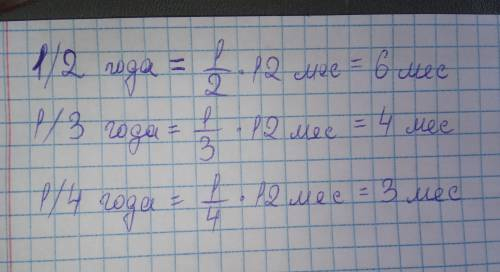 1/2 года = 1/2 · 12 мес = 6 мес
1/3 года = 1/3 · 12 мес = 4 мес
1/4 года = 1/4 · 12 мес = 3 мес